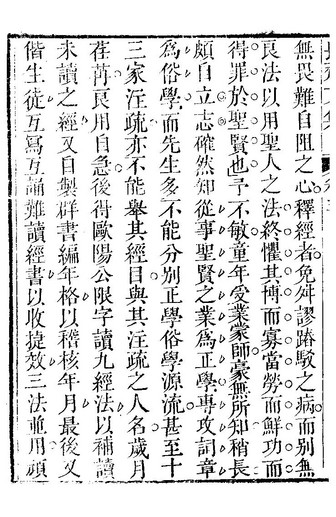 無畏難自阻之心釋經者免舛謬踳駁之病而別無
良法以用聖人之法終懼其博而寡當勞而鮮功而
得罪於聖賢也予不敏童年受業蒙師豪無所知稍長
頗自立志確然知從事聖賢之業為正學專攻詞章
為俗學而先生多不能分別正學俗學源流甚至十
三家注疏亦不能舉其經目與其注疏之人名歲月
荏苒良用自急後得歐陽公限字讀九經法以補讀
未讀之經又自製群書編年格以稽核年月最後又
偕生徒互寫互誦難讀經書以收捷效三法並用頗